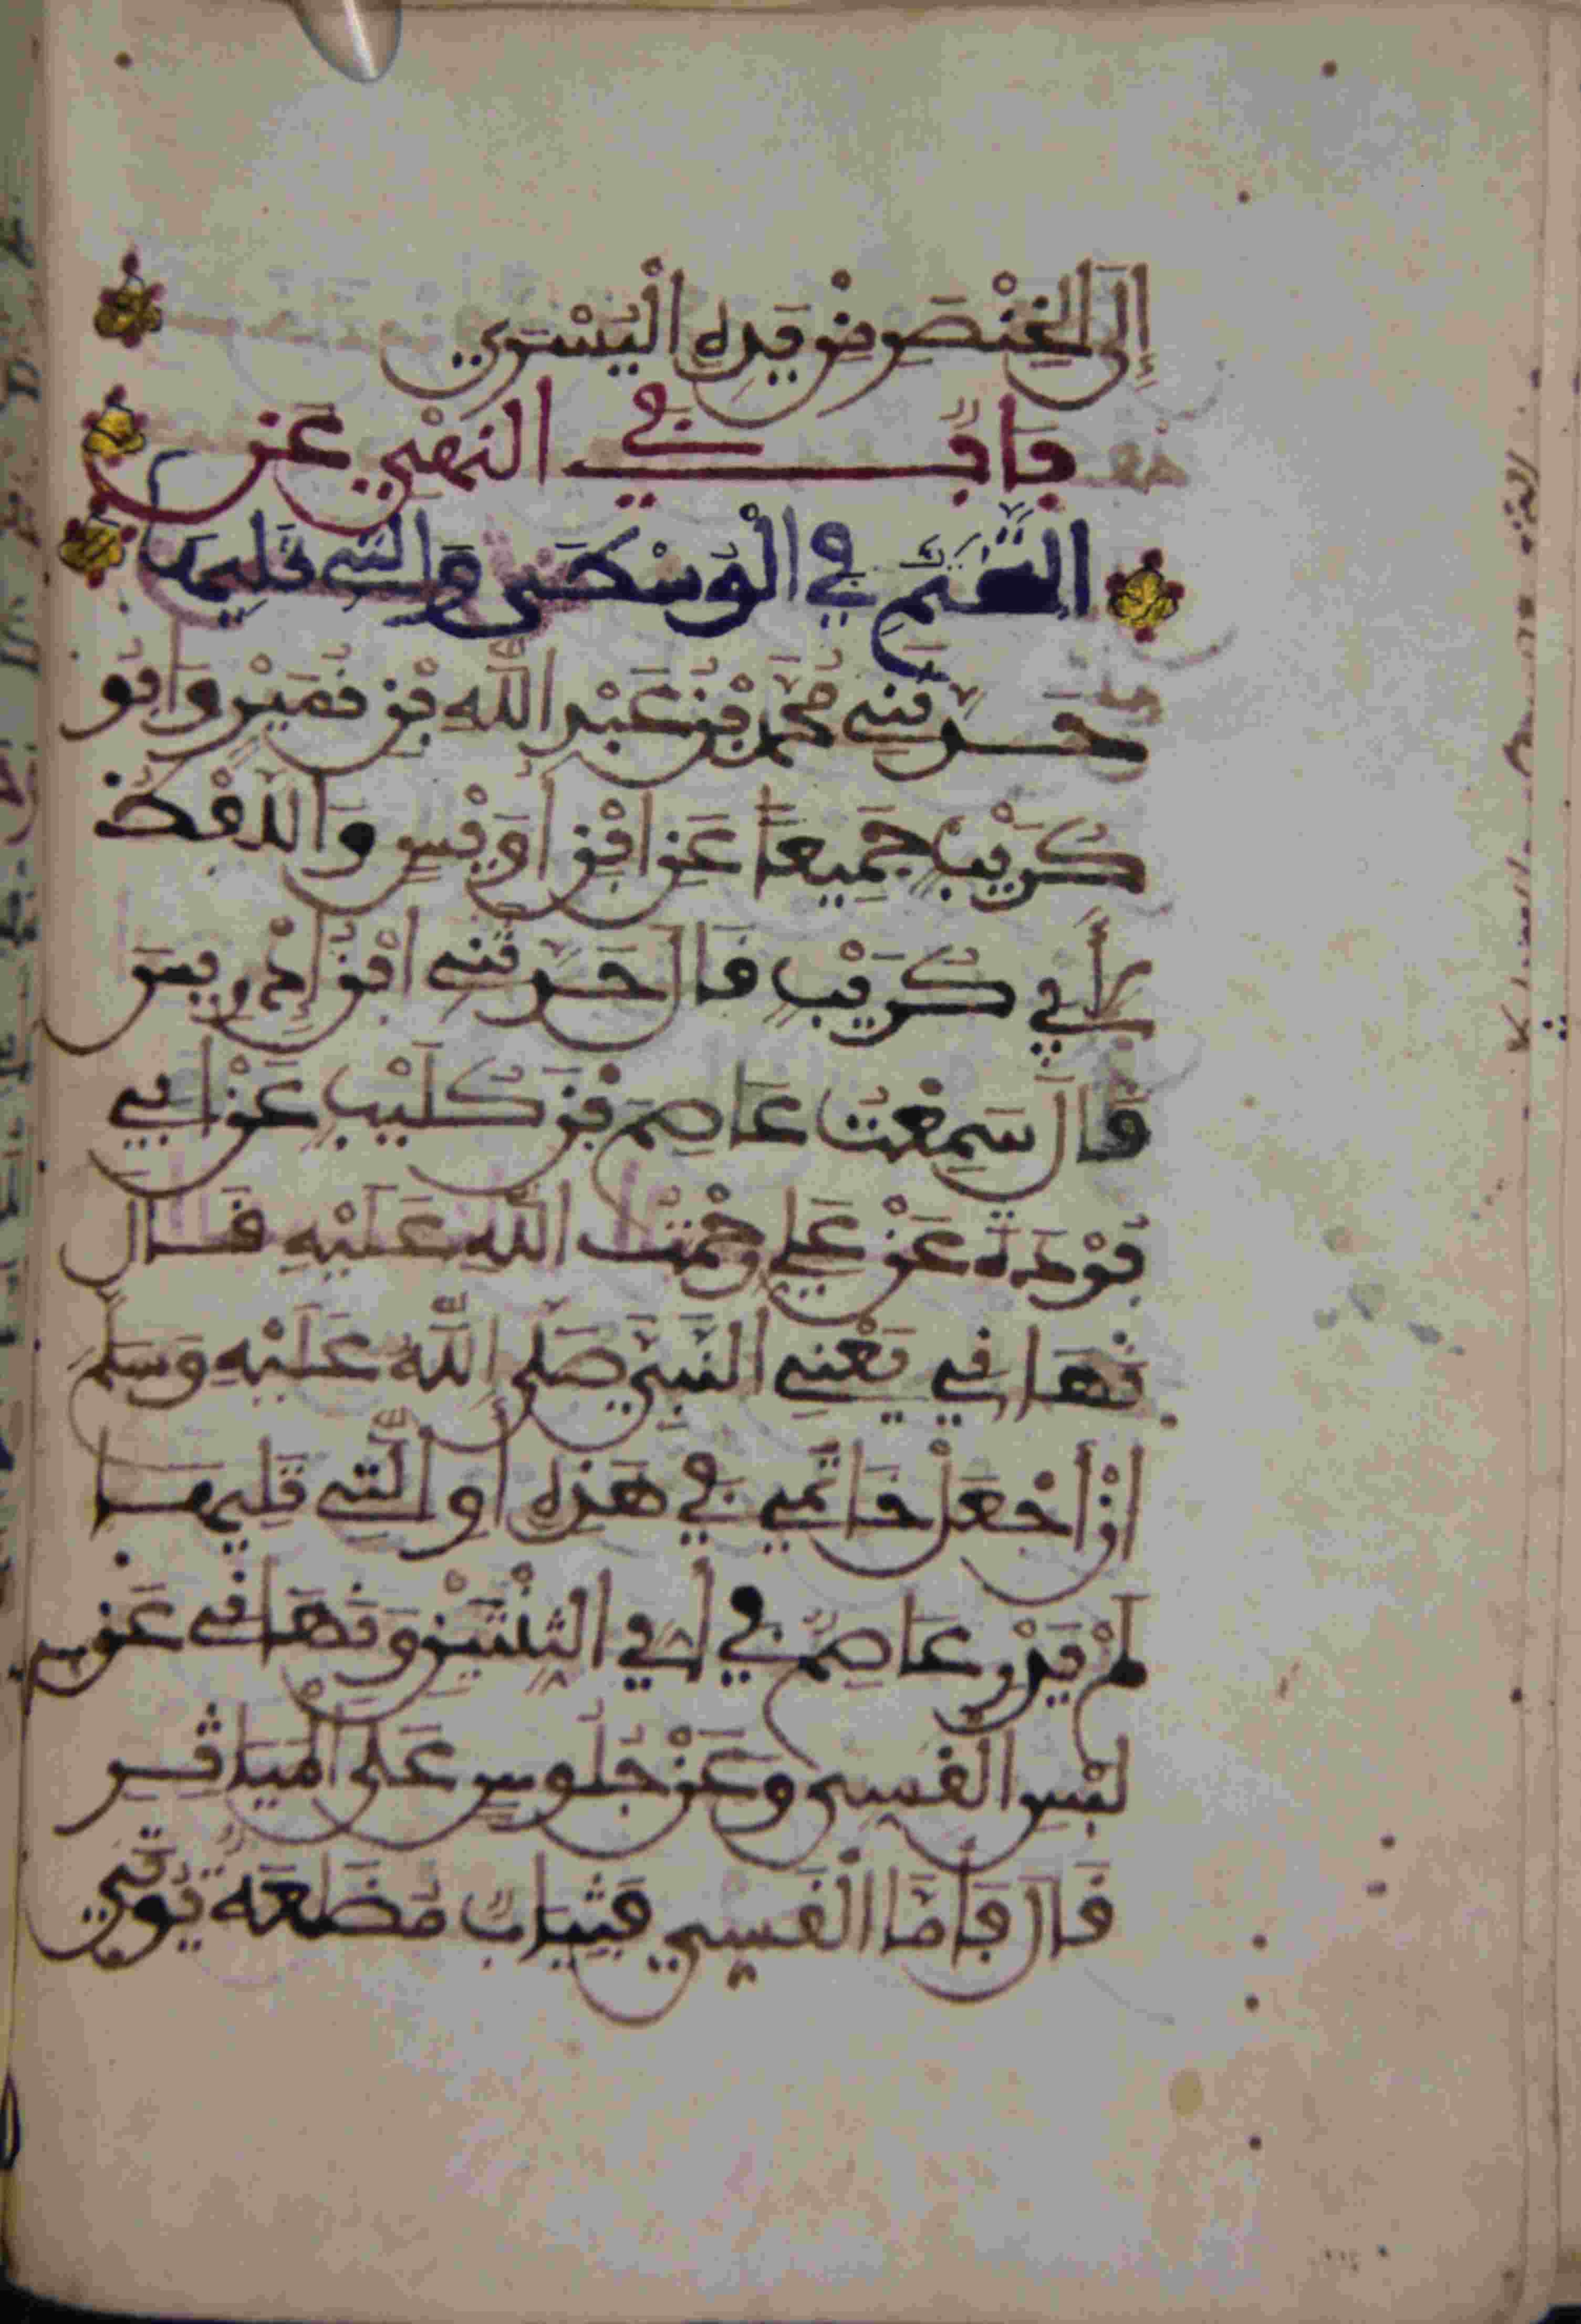 إِلَى الْخِنْصَرِ مِنْ يَدِهِ الْيُسْرَى
بَابٌ فِي النَّهْيِ عَنِ
التَّخَتُّمِ فِي الْوُسْطَى وَالَّتِي تَلِيهَا
حَدَّثَنِي مُحَمَّدُ بْنُ عَبْدِ اللَّهِ بْنِ نُمَيْرٍ وَأَبُو
كُرَيْبٍ جَمِيعًا عَنِ ابْنِ إِدْرِيسَ وَاللَّفْظُ
لِأَبِي كُرَيْبٍ قَالَ حَدَّثَنِي ابْنُ إِدْرِيسَ
قَالَ سَمِعْتُ عَاصِمَ بْنَ كُلَيْبٍ عَنْ أَبِي
بُرْدَةَ عَنْ عَلِيٍّ رَحْمَتُ اللَّهِ عَلَيْهِ قَالَ
نَهَانِي يَعْنِي النَّبِيَّ صَلَّى اللَّهُ عَلَيْهِ وَسَلَّمَ
أَنْ أَجْعَلَ خَاتَمِي فِي هَذِهِ أَوِ الَّتِي تَلِيهَا
لَمْ يَدْرِ عَاصِمٌ فِي أَيِّ الثِّنْتَيْنِ وَنَهَانِي عَنْ
لُبْسِ الْقَسِّيِّ وَعَنْ جُلُوسٍ عَلَى الْمَيَاثِرِ
قَالَ فَأَمَّا الْقَسِّيُّ فَثِيَابٌ مُضَلَّعَةٌ يُؤْتَى